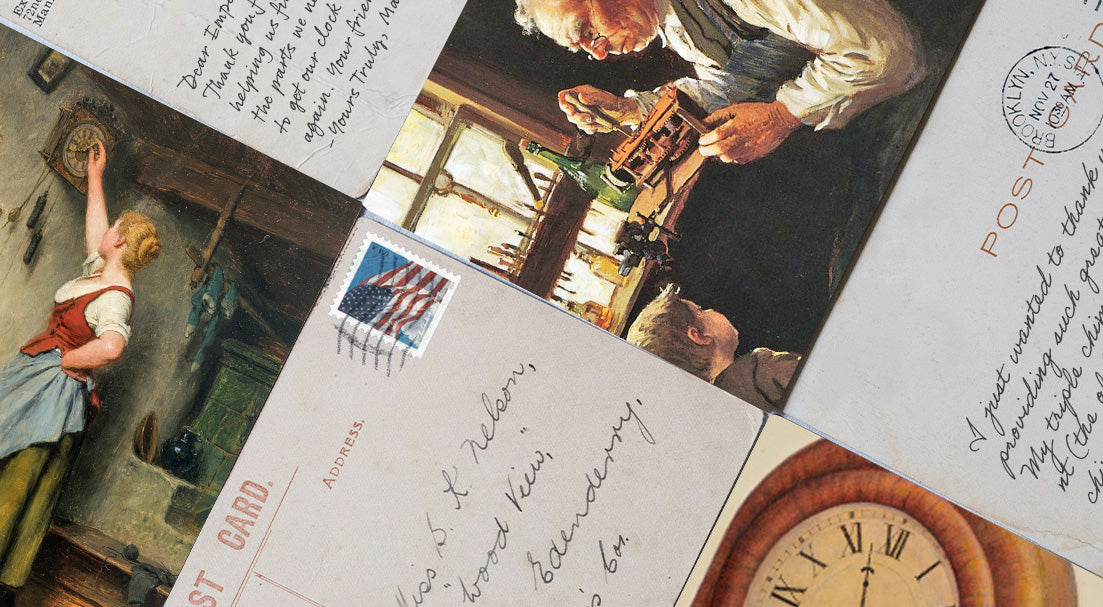 Ex
72n
Man
Dear Impe
Thank you f
helping us fi
the parts we n
to get our clock
again. Your frien
-Yours Truly, Ma
BROOKLYN, N.Y.
NOV 27
AM
POST CARD
I just wanted to thank y
providing such great
My triple chim
nt (the ol
chi
ST CARD.
ADDRESS.
iss D. K. Nelson,
wood View,"
Edenderry.
s Co.
IX X XI XII I